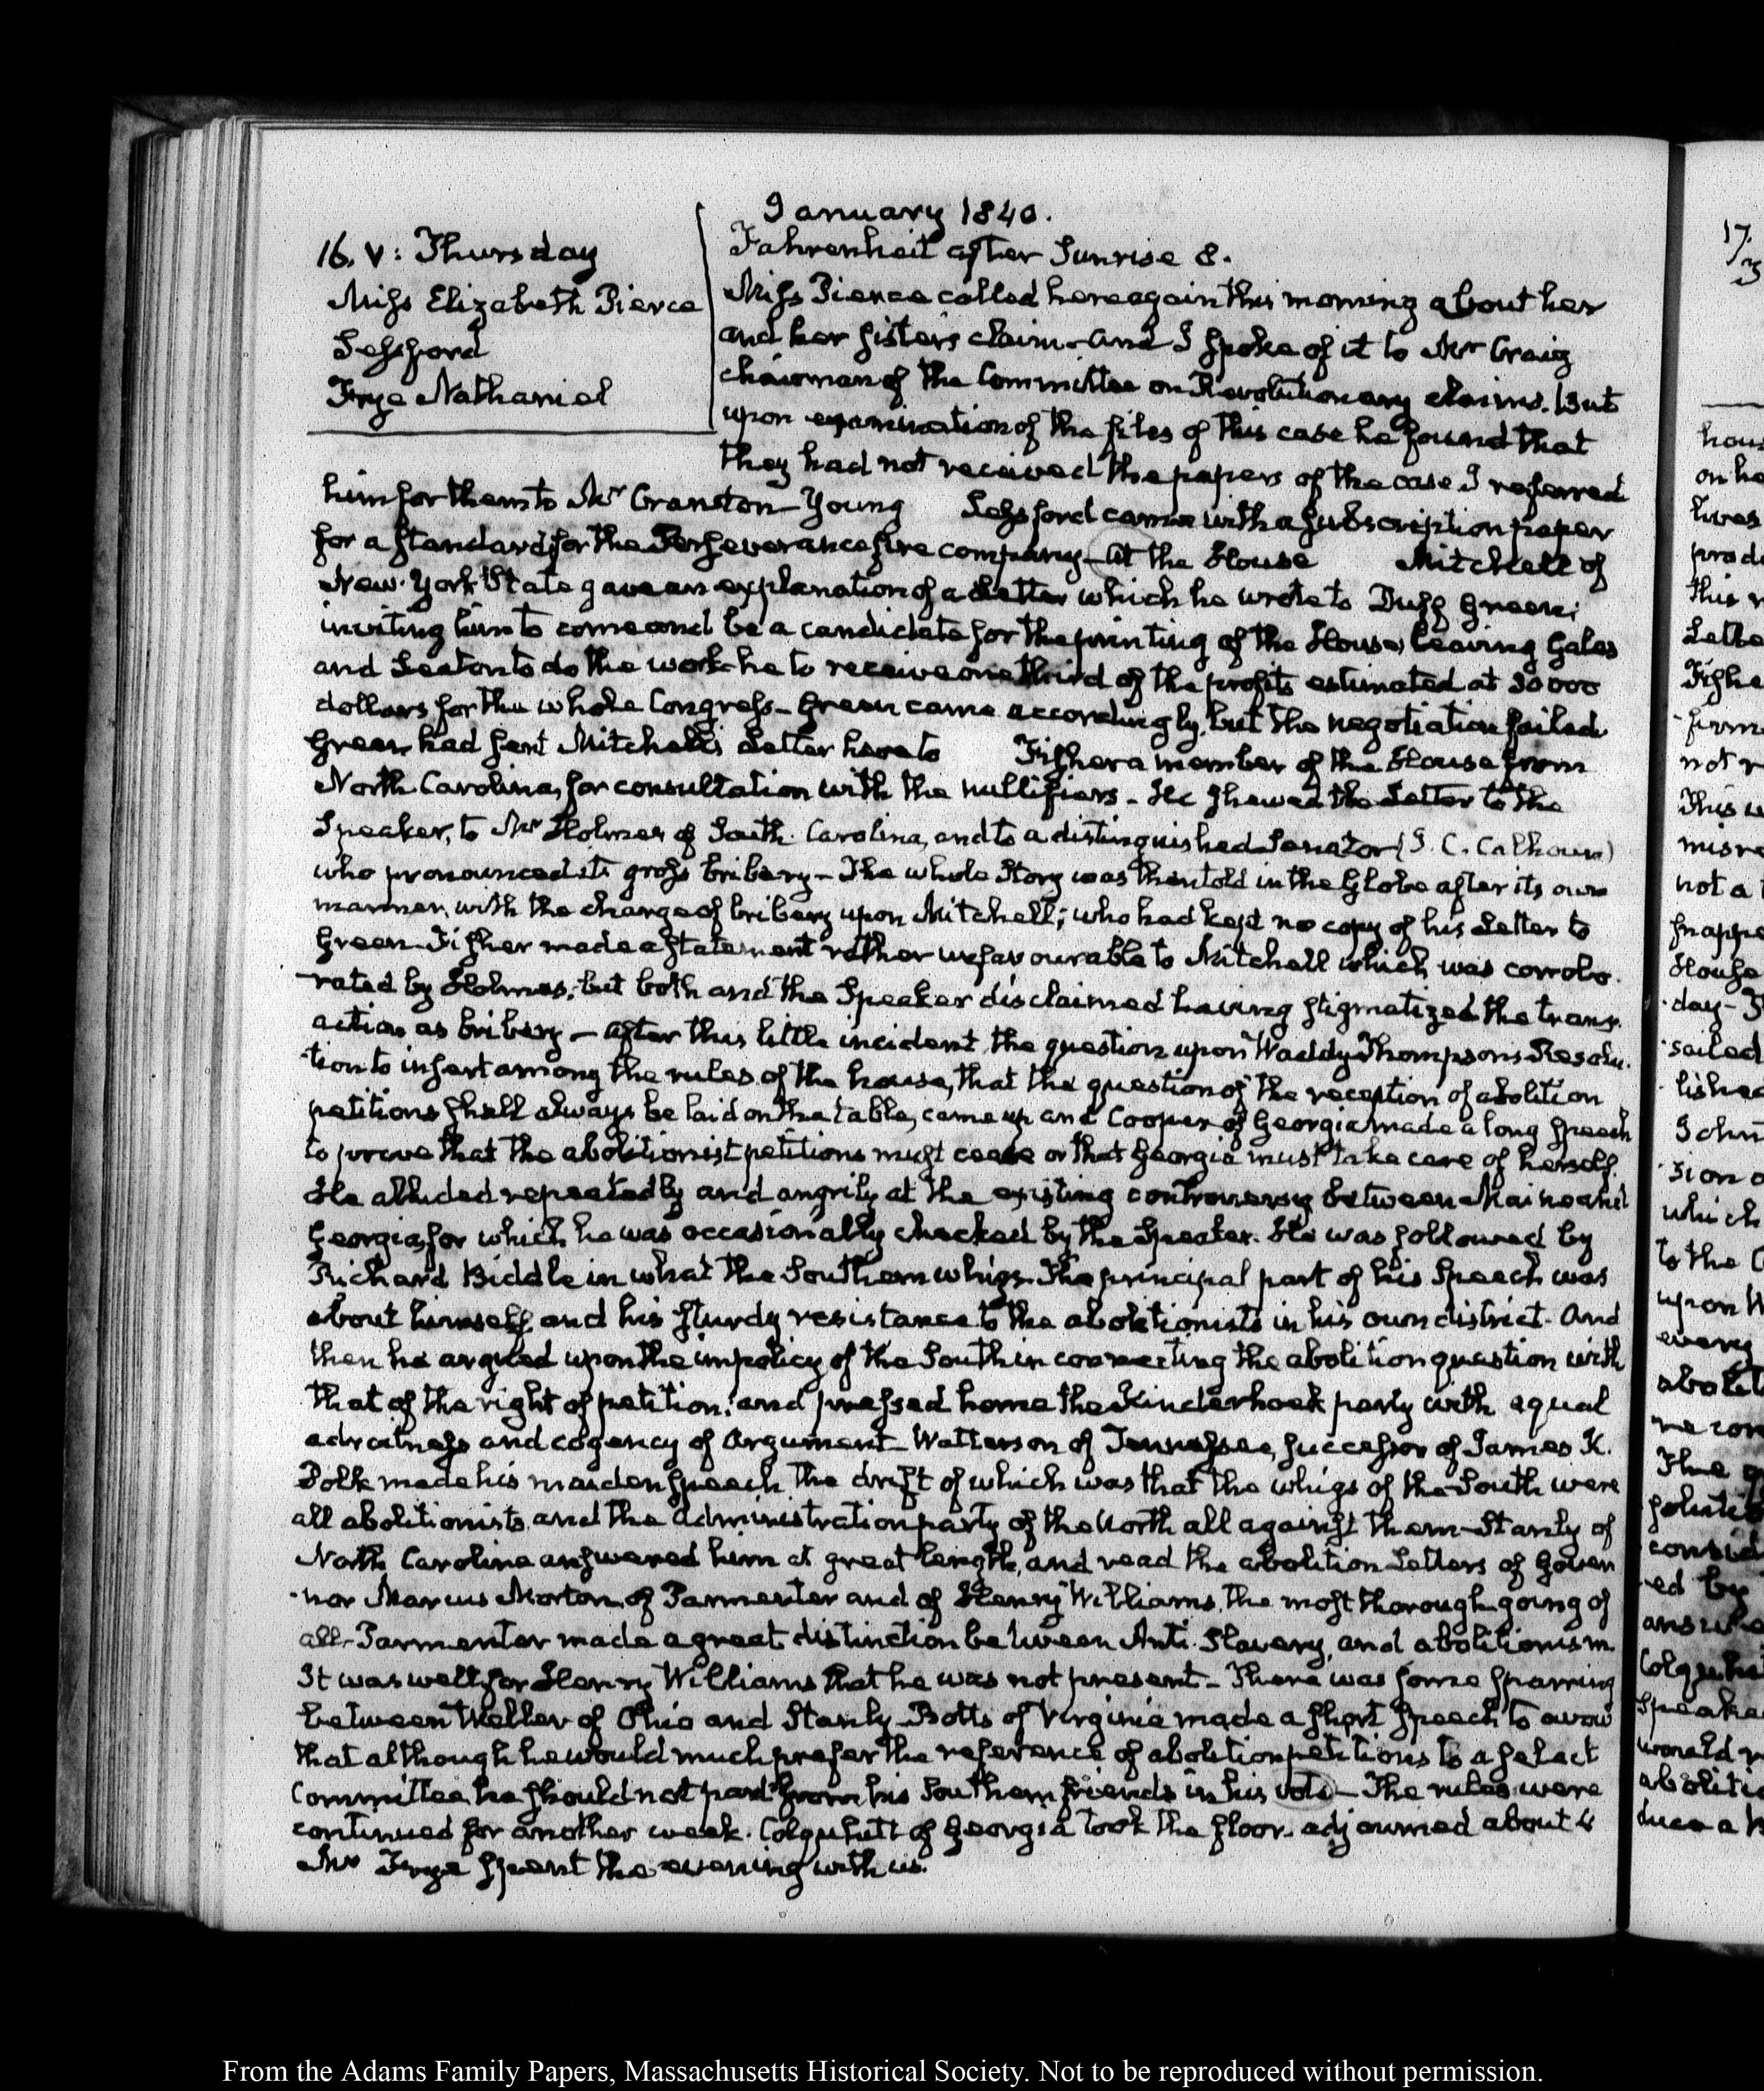 January 1840.
16. V: Thursday
Miss Elizabeth Pierce
Sessford
Frye Nathaniel
Fahrenheit after Sunrise 8.
Miss Pierce called here again this morning about her
and her sisters claim - and I spoke of it to Mr Craig
chairman of the Committee on Revolutionary claims. But
upon examination of the files of this case he found that
they had not received the papers of the case I referred
him for them to Mr Cranston - Young Sessford came with a subscription paper
for a standard for the Perseverance fire company - At the House Mitchell of
New-York State gave an explanation of a Letter which he wrote to Duff Green;
inviting him to come and be a candidate for the printing of the House, leaving Gales
and Seaton to do the work - he to receive one third of the profits estimated at 30000
dollars for the whole Congress - Green came accordingly, but the negotiation failed.
Green had sent Mitchell's Letter here to Fisher a member of the House from
North Carolina, for consultation with the nullifiers - He shewed the Letter to the
Speaker, to Mr Holmes of South-Carolina, and to a distinguished Senator (J. C. Calhoun)
who pronounced it gross bribery - The whole Story was then told in the Globe after its own
manner, with the charge of bribery upon Mitchell; who had kept no copy of his Letter to
Green - Fisher made a statement rather unfavourable to Mitchell which was corrobo-
rated by Holmes; but both and the Speaker disclaimed having stigmatized the trans-
action as bribery - after this little incident, the question upon Waddy Thompson's Resolu-
tion to insert among the rules of the house, that the question of the reception of abolition
petitions shall always be laid on the table, came up and Cooper of Georgia made a long speech
to prove that the abolitionist petitions must cease or that Georgia must take care of herself.
He alluded repeatedly and angrily at the existing controversy between Maine and
Georgia, for which he was occasionally checked by the Speaker. He was followed by
Richard Biddle in what the Southern whigs. The principal part of his Speech was
about himself, and his sturdy resistance to the abolitionists in his own district - And
then he argued upon the impolicy of the South in connecting the abolition question with
that of the right of petition; and pressed home the Kinderhook party with equal
adroitness and cogency of Argument - Watterson of Tennessee, successor of James K.
Polk made his maiden speech the drift of which was that the whigs of the South were
all abolitionists, and the Administration party of the North all against them - Stanly of
North Carolina answered him at great length, and read the abolition Letters of Gover-
nor Marcus Morton, of Parmenter and of Henry Williams, the most thorough going of
all - Parmenter made a great distinction between Anti-Slavery, and abolitionism
It was well for Henry Williams that he was not present - There was some sparring
between Weller of Ohio and Stanly - Botts of Virginia made a short speech to avow
that although he would much prefer the reference of abolition petitions to a select
Committee, he should not part from his Southern friends in his vote - The rules were
continued for another week. Colquhitt of Georgia took the floor - adjourned about 4
Mr Frye spent the evening with us.
17.
From the Adams Family Papers, Massachusetts Historical Society. Not to be reproduced without permission.